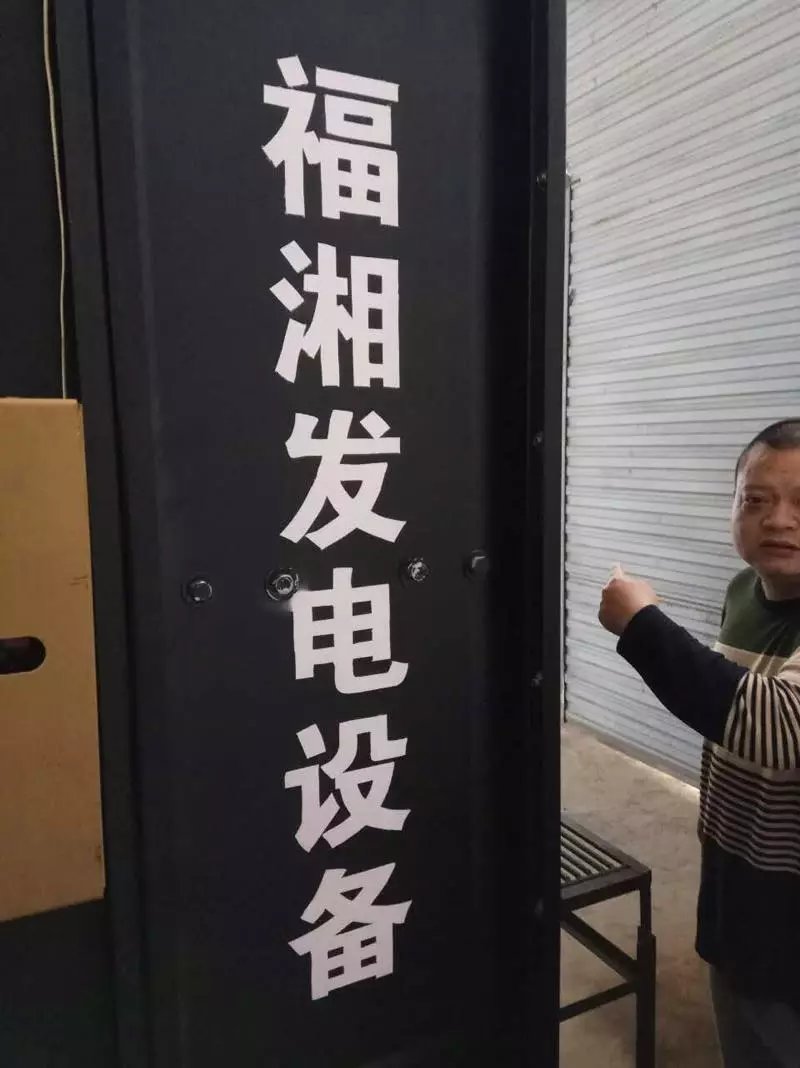 福湘发电设备